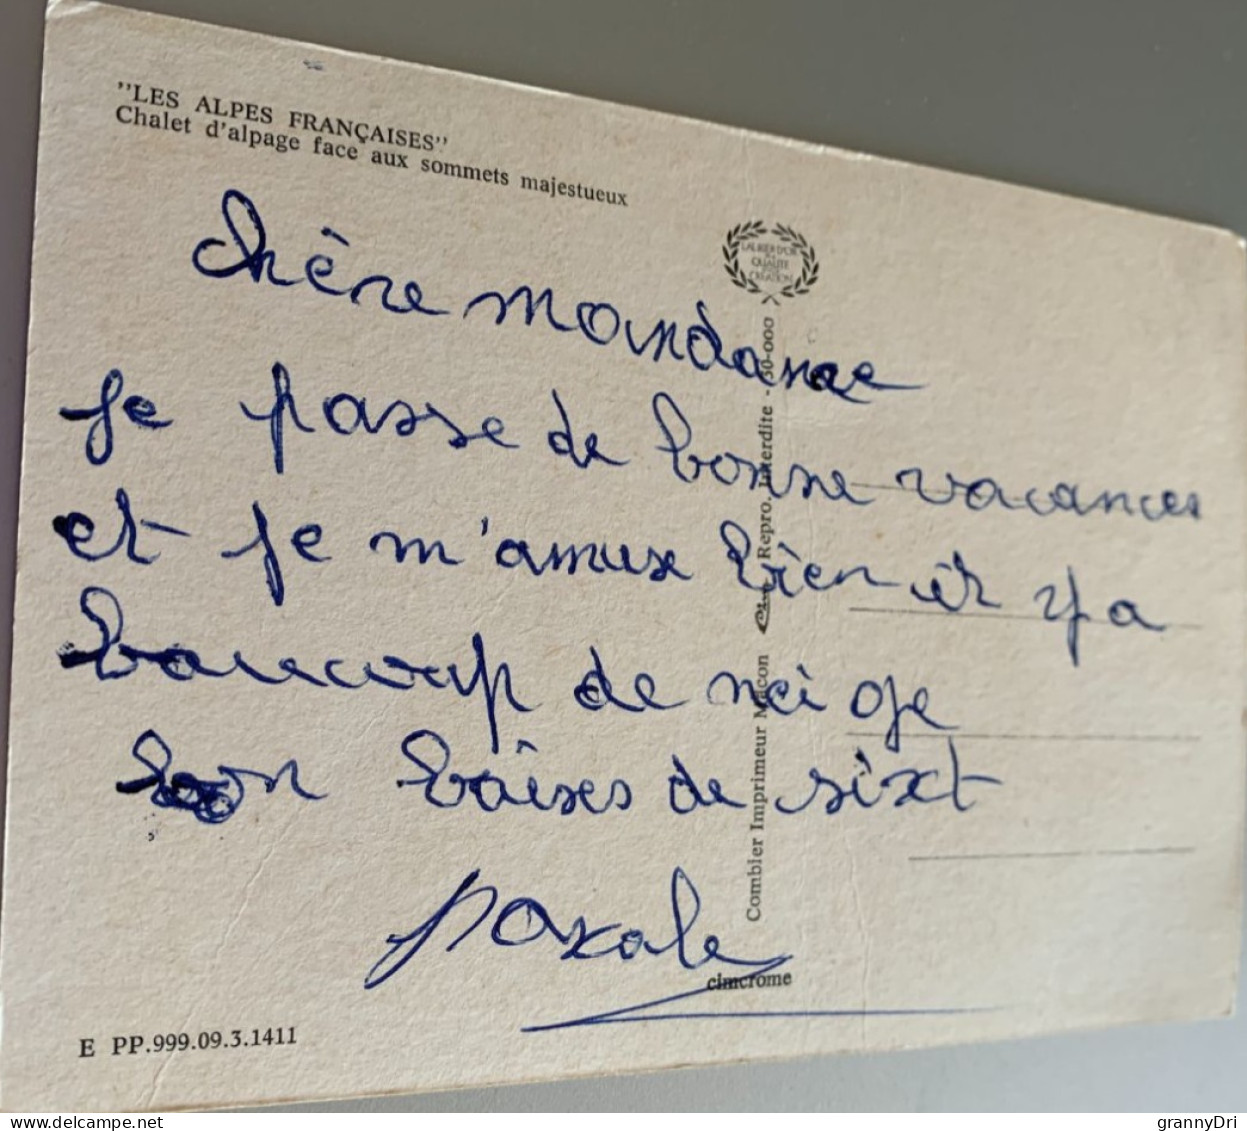 "LES ALPES FRANÇAISES"
Chalet d'alpage face aux sommets majestueux
LAURIER D'OR
QUALITÉ
CRÉATION
chère
je passe de bonne vacances
et je m'amuse bien il y a
beaucoup de nei ge
bon baises de sixt
pascale
Combier Imprimeur Mâcon
Repro. Interdite - 30-000
cimcrome
E PP.999.09.3.1411
delcampe.net
grannyDri